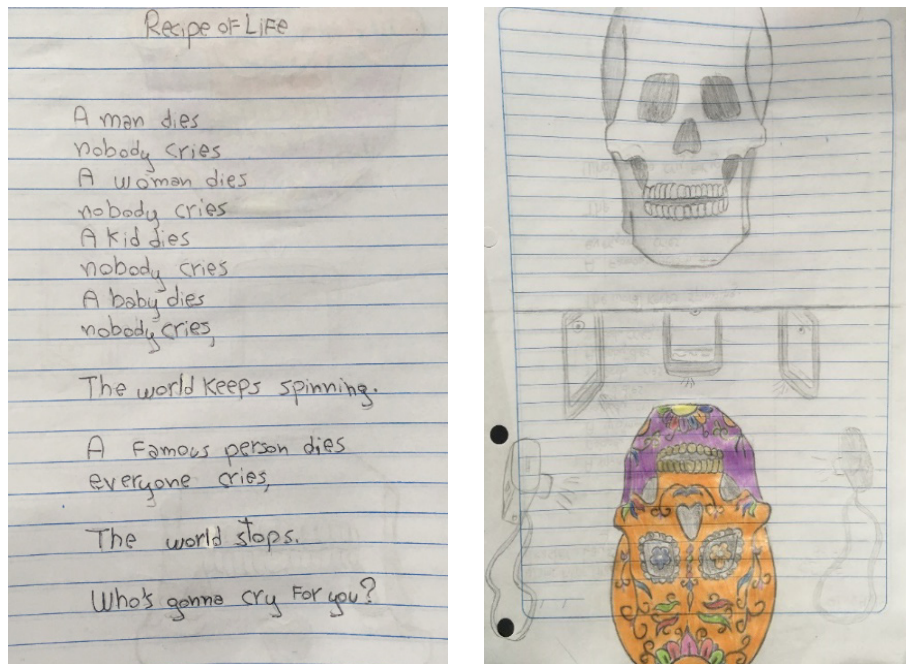 Recipe of Life
A man dies
nobody cries
A woman dies
nobody cries
A kid dies
nobody cries
A baby dies
nobody cries,
The world keeps spinning.
A Famous person dies
everyone cries,
The world stops.
Who's gonna cry For you?